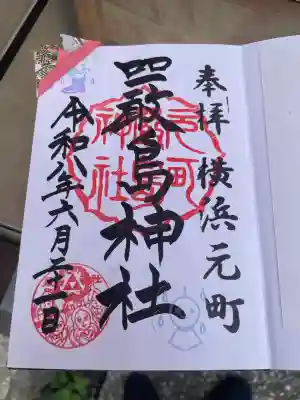 奉拝 横浜元町
嚴島神社
令和八年六月二十一日
元町
神社